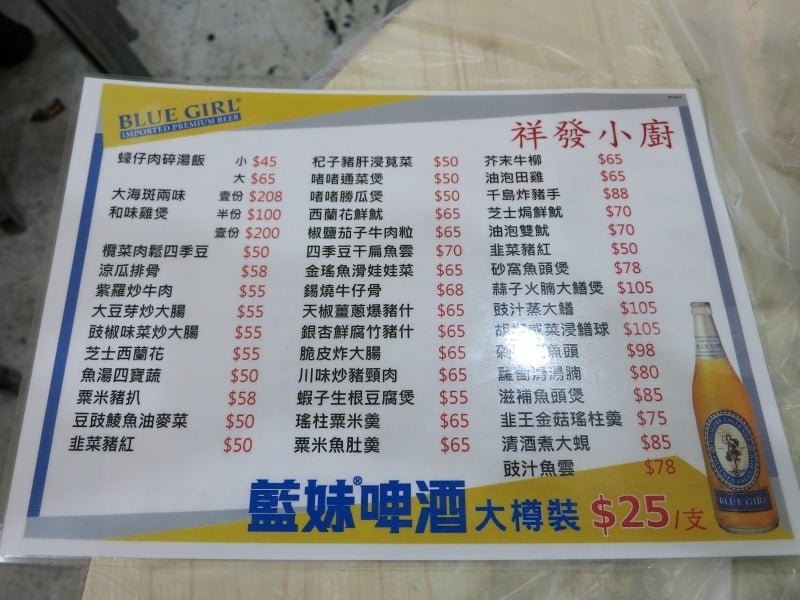 BLUE GIRL®
IMPORTED PREMIUM BEER
祥發小廚
蠔仔肉碎湯飯 小 $45
大 $65
大海斑兩味 壹份 $208
和味雞煲 半份 $100
壹份 $200
欖菜肉鬆四季豆 $50
涼瓜排骨 $58
紫羅炒牛肉 $55
大豆芽炒大腸 $55
豉椒味菜炒大腸 $55
芝士西蘭花 $55
魚湯四寶蔬 $50
粟米豬扒 $58
豆豉鯪魚油麥菜 $50
韭菜豬紅 $50
杞子豬肝浸莧菜 $50
啫啫通菜煲 $50
啫啫勝瓜煲 $50
西蘭花鮮魷 $65
椒鹽茄子牛肉粒 $65
四季豆干扁魚雲 $70
金瑤魚滑娃娃菜 $65
錫燒牛仔骨 $68
天椒薑蔥爆豬什 $65
銀杏鮮腐竹豬什 $65
脆皮炸大腸 $65
川味炒豬頸肉 $65
蝦子生根豆腐煲 $55
瑤柱粟米羹 $65
粟米魚肚羹 $65
芥末牛柳 $65
油泡田雞 $65
千島炸豬手 $88
芝士焗鮮魷 $70
油泡雙魷 $70
韭菜豬紅 $50
砂窩魚頭煲 $78
蒜子火腩大鱔煲 $105
豉汁蒸大鱔 $105
胡 菜浸鱔球 $105
魚頭 $98
湯腩 $80
滋補魚頭煲 $85
韭王金菇瑤柱羹 $75
清酒煮大蜆 $85
豉汁魚雲 $78
藍妹®啤酒 大樽裝 $25/支
BLUE GIRL
BLUE GIRL